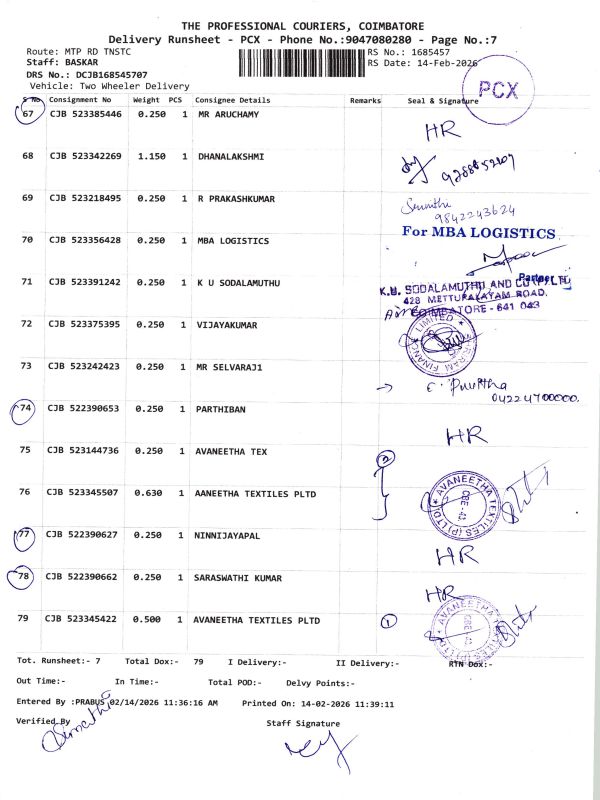 THE PROFESSIONAL COURIERS, COIMBATORE
Delivery Runsheet - PCX - Phone No.:9047080280 - Page No.:7
Route: MTP RD TNSTC
RS No.: 1685457
Staff: BASKAR
RS Date: 14-Feb-2026
DRS No.: DCJB168545707
Vehicle: Two Wheeler Delivery
PCX
S No Consignment No Weight PCS Consignee Details Remarks Seal & Signature
67 CJB 523385446 0.250 1 MR ARUCHAMY
HR
68 CJB 523342269 1.150 1 DHANALAKSHMI
69 CJB 523218495 0.250 1 R PRAKASHKUMAR
9842243624
70 CJB 523356428 0.250 1 MBA LOGISTICS
For MBA LOGISTICS
Partner
71 CJB 523391242 0.250 1 K U SODALAMUTHU
K.U. SODALAMUTHU AND CO (P) LTD
428 METTUPALAYAM ROAD,
COIMBATORE - 641 043
72 CJB 523375395 0.250 1 VIJAYAKUMAR
73 CJB 523242423 0.250 1 MR SELVARAJ1
04224700000
74 CJB 522390653 0.250 1 PARTHIBAN
HR
75 CJB 523144736 0.250 1 AVANEETHA TEX
2
76 CJB 523345507 0.630 1 AANEETHA TEXTILES PLTD
AVANEETHA TEXTILES (P) LTD
77 CJB 522390627 0.250 1 NINNIJAYAPAL
HR
78 CJB 522390662 0.250 1 SARASWATHI KUMAR
HR
79 CJB 523345422 0.500 1 AVANEETHA TEXTILES PLTD
1
AVANEETHA TEXTILES (P) LTD
Tot. Runsheet:- 7 Total Dox:- 79 I Delivery:- II Delivery:- RTN Dox:-
Out Time:- In Time:- Total POD:- Delvy Points:-
Entered By :PRABUS 02/14/2026 11:36:16 AM Printed On: 14-02-2026 11:39:11
Verified By Staff Signature